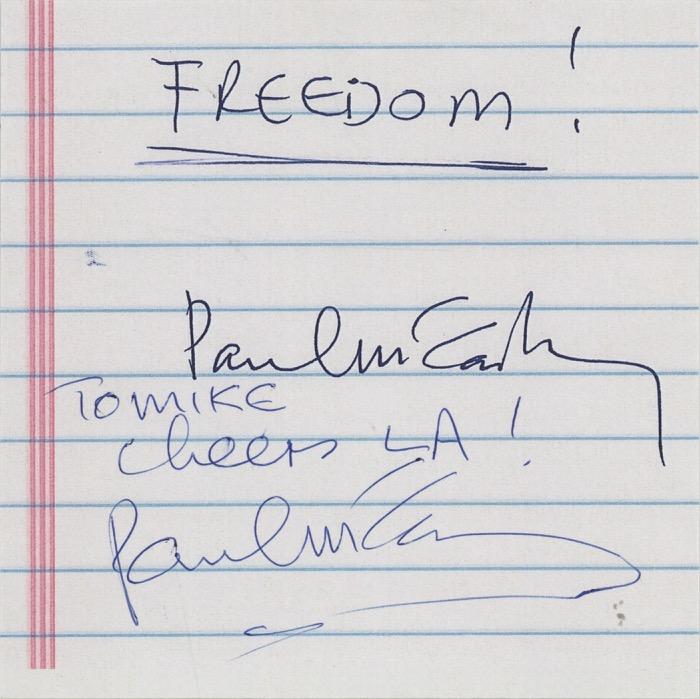 FREEDOM!
Paul McCartney
TO MIKE
cheers LA!
Paul McCartney